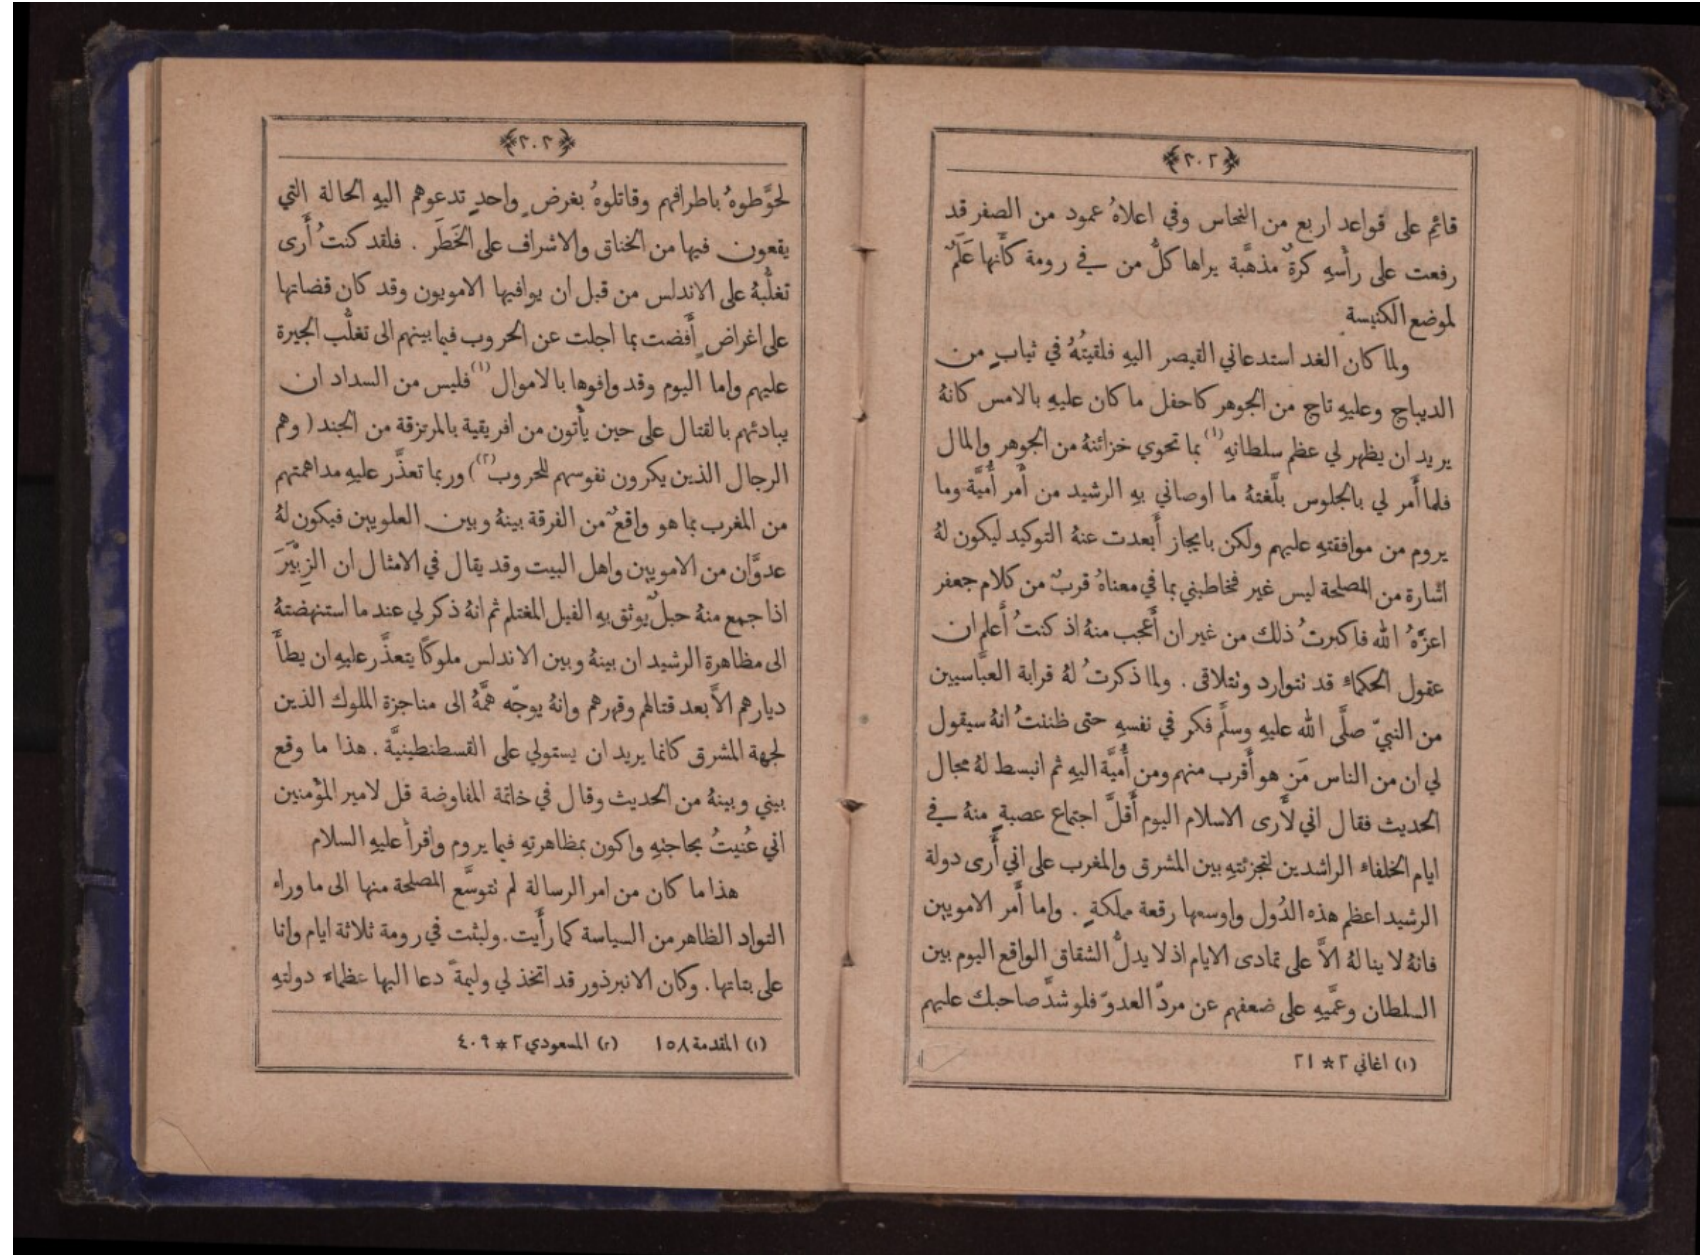 ﴿٢٠٢﴾
قائمٍ على قواعد اربع من النحاس وفي اعلاهُ عمود من الصفر قد
رفعت على رأْسهِ كرةٌ مذهَّبة يراها كلُّ من في رومة كأَنها عَلَمٌ
لموضع الكنيسة
ولما كان الغد استدعاني القيصر اليهِ فلقيتُهُ في ثيابٍ من
الديباج وعليهِ تاج من الجوهر كاحفل ما كان عليهِ بالامس كانهُ
يريد ان يظهر لي عظم سلطانهِ (١) بما تحوي خزائنهُ من الجوهر والمال
فلما أَمر لي بالجلوس بلَّغتهُ ما اوصاني بهِ الرشيد من أَمر أُميَّة وما
يروم من موافقتهِ عليهم ولكن بايجاز أَبعدت عنهُ التوكيد ليكون لهُ
اشارة من المصلحة ليس غير فخاطبني بما في معناهُ قربٌ من كلام جعفر
اعزَّهُ الله فاكبرتُ ذلك من غير ان أَعجب منهُ اذ كنتُ أَعلم ان
عقول الحكماء قد نتوارد ونتلاقى . ولما ذكرتُ لهُ قرابة العبَّاسيين
من النبيّ صلَّى الله عليهِ وسلَّم فكر في نفسهِ حتى ظننتُ انهُ سيقول
لي ان من الناس مَن هو أَقرب منهم ومن أُميَّة اليهِ ثم انبسط لهُ مجال
الحديث فقال اني لأَرى الاسلام اليوم أَقلَّ اجتماع عصبةٍ منهُ في
ايام الخلفاء الراشدين لتجزئتهِ بين المشرق والمغرب على اني أَرى دولة
الرشيد اعظم هذه الدُول واوسعها رقعة مملكةٍ . واما أَمر الامويين
فانهُ لا ينالهُ الاَّ على تمادى الايام اذ لا يدلُّ الشقاق الواقع اليوم بين
السلطان وعمَّيهِ على ضعفهم عن مردّ العدوّ فلو شدَّ صاحبك عليهم
(١) اغاني ٢ * ٢١
﴿٢٠٣﴾
لحوَّطوهُ باطرافهم وقاتلوهُ بغرضٍ واحدٍ تدعوهم اليهِ الحالة التي
يقعون فيها من الخناق والاشراف على الخَطَر . فلقد كنتُ أَرى
تغلُّبهُ على الاندلس من قبل ان يوافيها الامويون وقد كان قضاتها
على اغراضٍ أَفضت بما اجلت عن الحروب فيما بينهم الى تغلُّب الجيرة
عليهم واما اليوم وقد وافوها بالاموال (١) فليس من السداد ان
يبادئهم بالقتال على حين يأْتون من افريقية بالمرتزقة من الجند ( وهم
الرجال الذين يكرون نفوسهم للحروب (٢) ) وربما تعذَّر عليهِ مداهمتهم
من المغرب بما هو واقعٌ من الفرقة بينهُ وبين العلويين فيكون لهُ
عدوَّان من الامويين واهل البيت وقد يقال في الامثال ان الزِبْيَرَ
اذا جمع منهُ حبلٌ يوثق بهِ الفيل المغتلم ثم انهُ ذكر لي عند ما استنهضتهُ
الى مظاهرة الرشيد ان بينهُ وبين الاندلس ملوكًا يتعذَّر عليهِ ان يطأَ
ديارهم الاَّ بعد قتالهم وقهرهم وانهُ يوجّه همَّهُ الى مناجزة الملوك الذين
لجهة المشرق كانما يريد ان يستولي على القسطنطينيَّة . هذا ما وقع
بيني وبينهُ من الحديث وقال في خاتمة المفاوضة قل لامير المؤْمنين
اني عُنيتُ بحاجتهِ واكون بمظاهرتهِ فيما يروم واقرأ عليهِ السلام
هذا ما كان من امر الرسالة لم نتوسَّع المصلحة منها الى ما وراء
التواد الظاهر من السياسة كما رأَيت . ولبثت في رومة ثلاثة ايام وانا
على بتاتها . وكان الانبرذور قد اتخذ لي وليمةً دعا اليها عظماء دولتهِ
(١) المقدمة ١٥٨ (٢) المسعودي ٢ * ٤٠٩